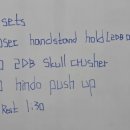 sets
sec handstand hold (2DB
2DB skull crusher
hindo push up
Rest 1.30